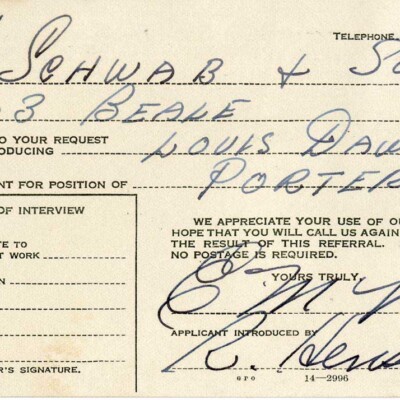 TELEPHONE
SCHWAB & S
3 BEALE
TO YOUR REQUEST
ODUCING LOUIS DAV
NT FOR POSITION OF PORTER
OF INTERVIEW
WE APPRECIATE YOUR USE OF OU
HOPE THAT YOU WILL CALL US AGAIN
TE TO
THE RESULT OF THIS REFERRAL.
T WORK
NO POSTAGE IS REQUIRED.
YOURS TRULY,
E M
APPLICANT INTRODUCED BY
R. Hens
R'S SIGNATURE.
GPO 14—2996